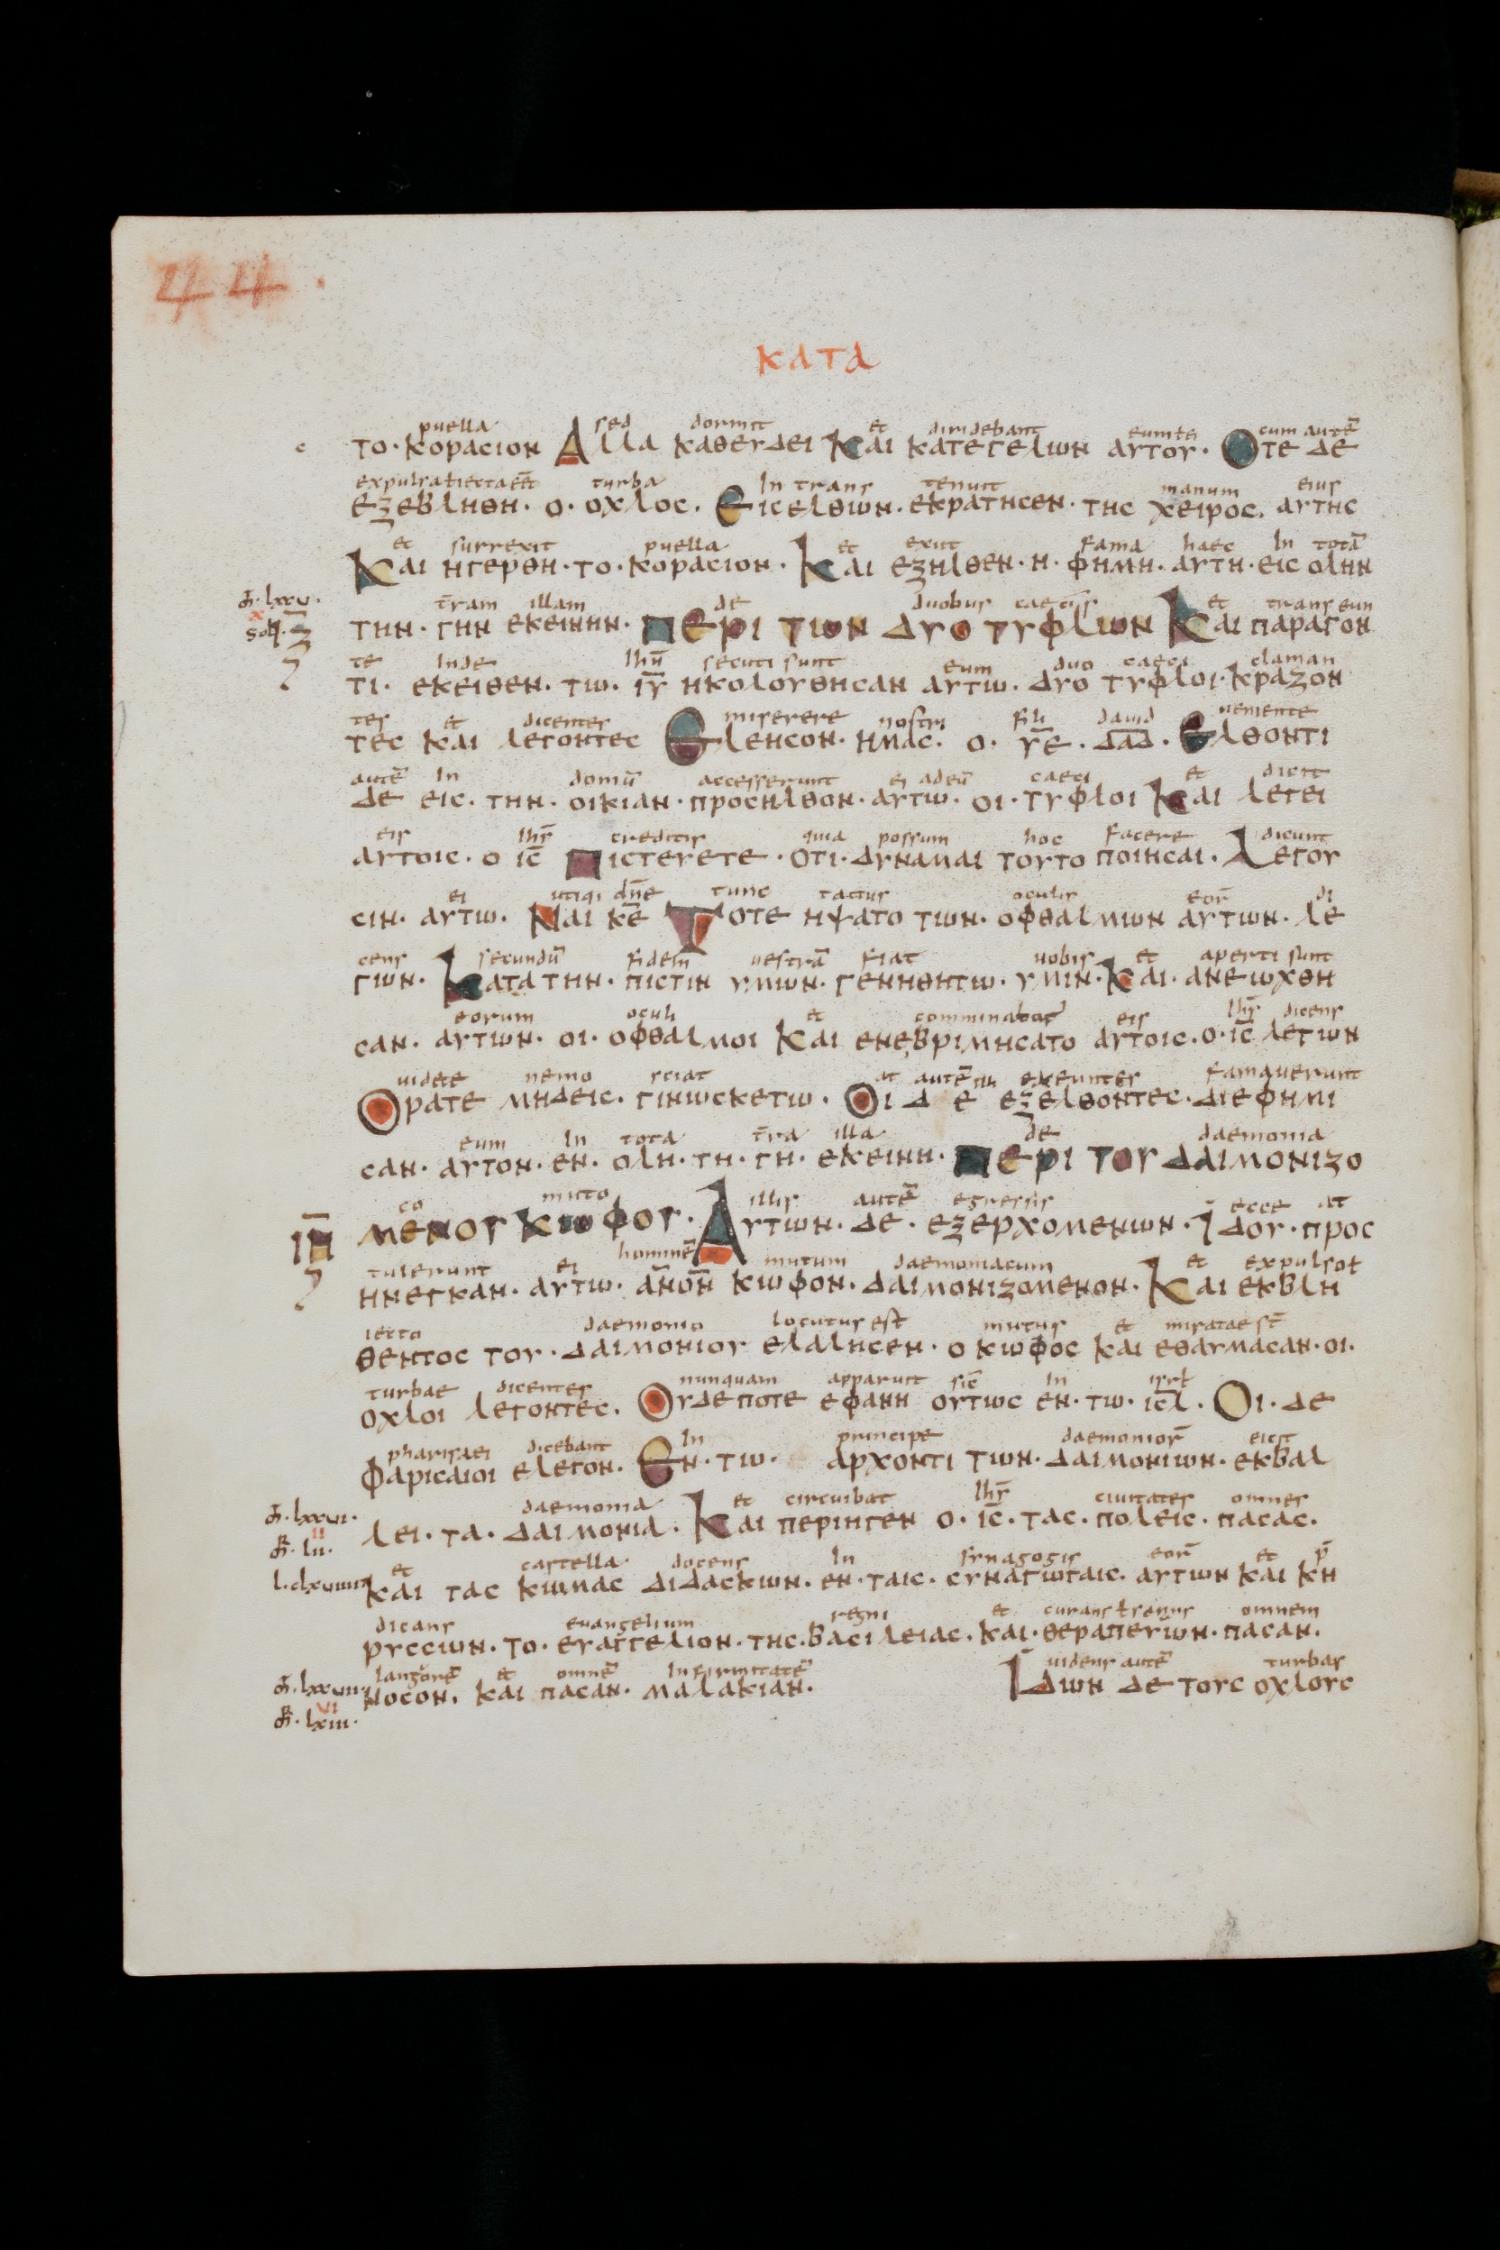 44.
ΚΑΤΑ
puella sed dormit et diridebant eum&ei cum autē
το· κορασιον Αλλα καθευδει Και κατεγελων αυτου· Οτε δε
turba Intrans tenuit manum eius
εξεβληθη· ο· οχλος. Εισελθων· εκρατησεν· της χειρος. αυτης
et surrexit puella et exiit fama haec In totā
Και ηγερθη· το· κορασιον· Και εξηλθεν· η· φημη· αυτη· εις ολην
τ̄ram illam de duobus caecis et trans eun
την· γην εκεινην· Περι των δυο τυφλων Και παραγον
te Inde Ihū secuti sunt eum duo caeci claman
τι· εκειθεν· τω· ιῡ ηκολουθησαν αυτω· δυο τυφλοι· κραζον
tes et dicentes miserere nostri fili dauid uemente
τες και λεγοντες Ελεησον· ημας· ο· υε̄· δαδ̄· Ελθοντι
autē In domū accesserunt ei adeū caeci et dicit
δε εις· την· οικιαν· προσηλθον· αυτω· οι· τυφλοι Και λεγει
eis Ihs̄ creditis quia possum hoc facere dicunt
αυτοις· ο ις̄ Πιστευετε· οτι· δυναμαι τουτο ποιησαι· Λεγου
ei utiqi dn̄e tunc tactus oculis eor̄ di
σιν· αυτω· Ναι κε̄ Τοτε ηψατο των· οφθαλμων αυτων· λε
cens secundū fidem uestrā fiat uobis et aperti sunt
γων· Κατα την· πιστιν υμων· γενηθητω· υμιν· Και· ανεωχθη
eorum oculi et comminabat eis Ihs̄ dicens
σαν· αυτων· οι· οφθαλμοι Και ενεβριμησατο αυτοις· ο· ις̄ λεγων
uidete nemo sciat at autē exeuntes famauerunt
Ορατε μηδεις· γινωσκετω· Οι δ ε εξελθοντες· διεφημι
eum In tota τ̄ra illa de daemonia
σαν· αυτον· εν· ολη· τη· γη· εκεινη· Περι του δαιμονιζο
co muto illis autē egressis ecce at
μενου κωφου· Αυτων· δε· εξερχομενων· Ιδου· προς
tulerunt ei hominē mutum daemoniacum et expulsoł
ηνεγκαν· αυτω· αν̄ον̄ κωφον· δαιμονιζομενον· Και εκβλη
iecto daemonio locutus est mutus et miratae sτ̄
θεντος του· δαιμονιου ελαλησεν· ο κωφος και εθαυμασαν· οι·
turbae dicentes nunquam apparuit sic In isrł
οχλοι λεγοντες. Ουδεποτε εφανη ουτως εν· τω· ισλ̄· Οι· δε
pharisaei dicebant In principe daemonior̄ eicit
φαρισαιοι ελεγον. Εν· τω· αρχοντι των· δαιμονιων· εκβαλ
daemonia et circuibat Ihs̄ ciuitates omnes
λει· τα· δαιμονια· Και περιηγεν ο· ις̄· τας· πολεις· πασας.
et castella docens In synagogis eor̄ et p̄
και τας κωμας διδασκων· εν· ταις· συναγωγαις. αυτων και κη
dicans euangelium regni et curans omnem
ρυσσων· το· ευαγγελιον· της· βασιλειας· και· θεραπευων· πασαν.
langorē et omnē Infirmitatē uidens autē turbas
νοσον· και πασαν· μαλακιαν· Ιδων δε τους οχλους